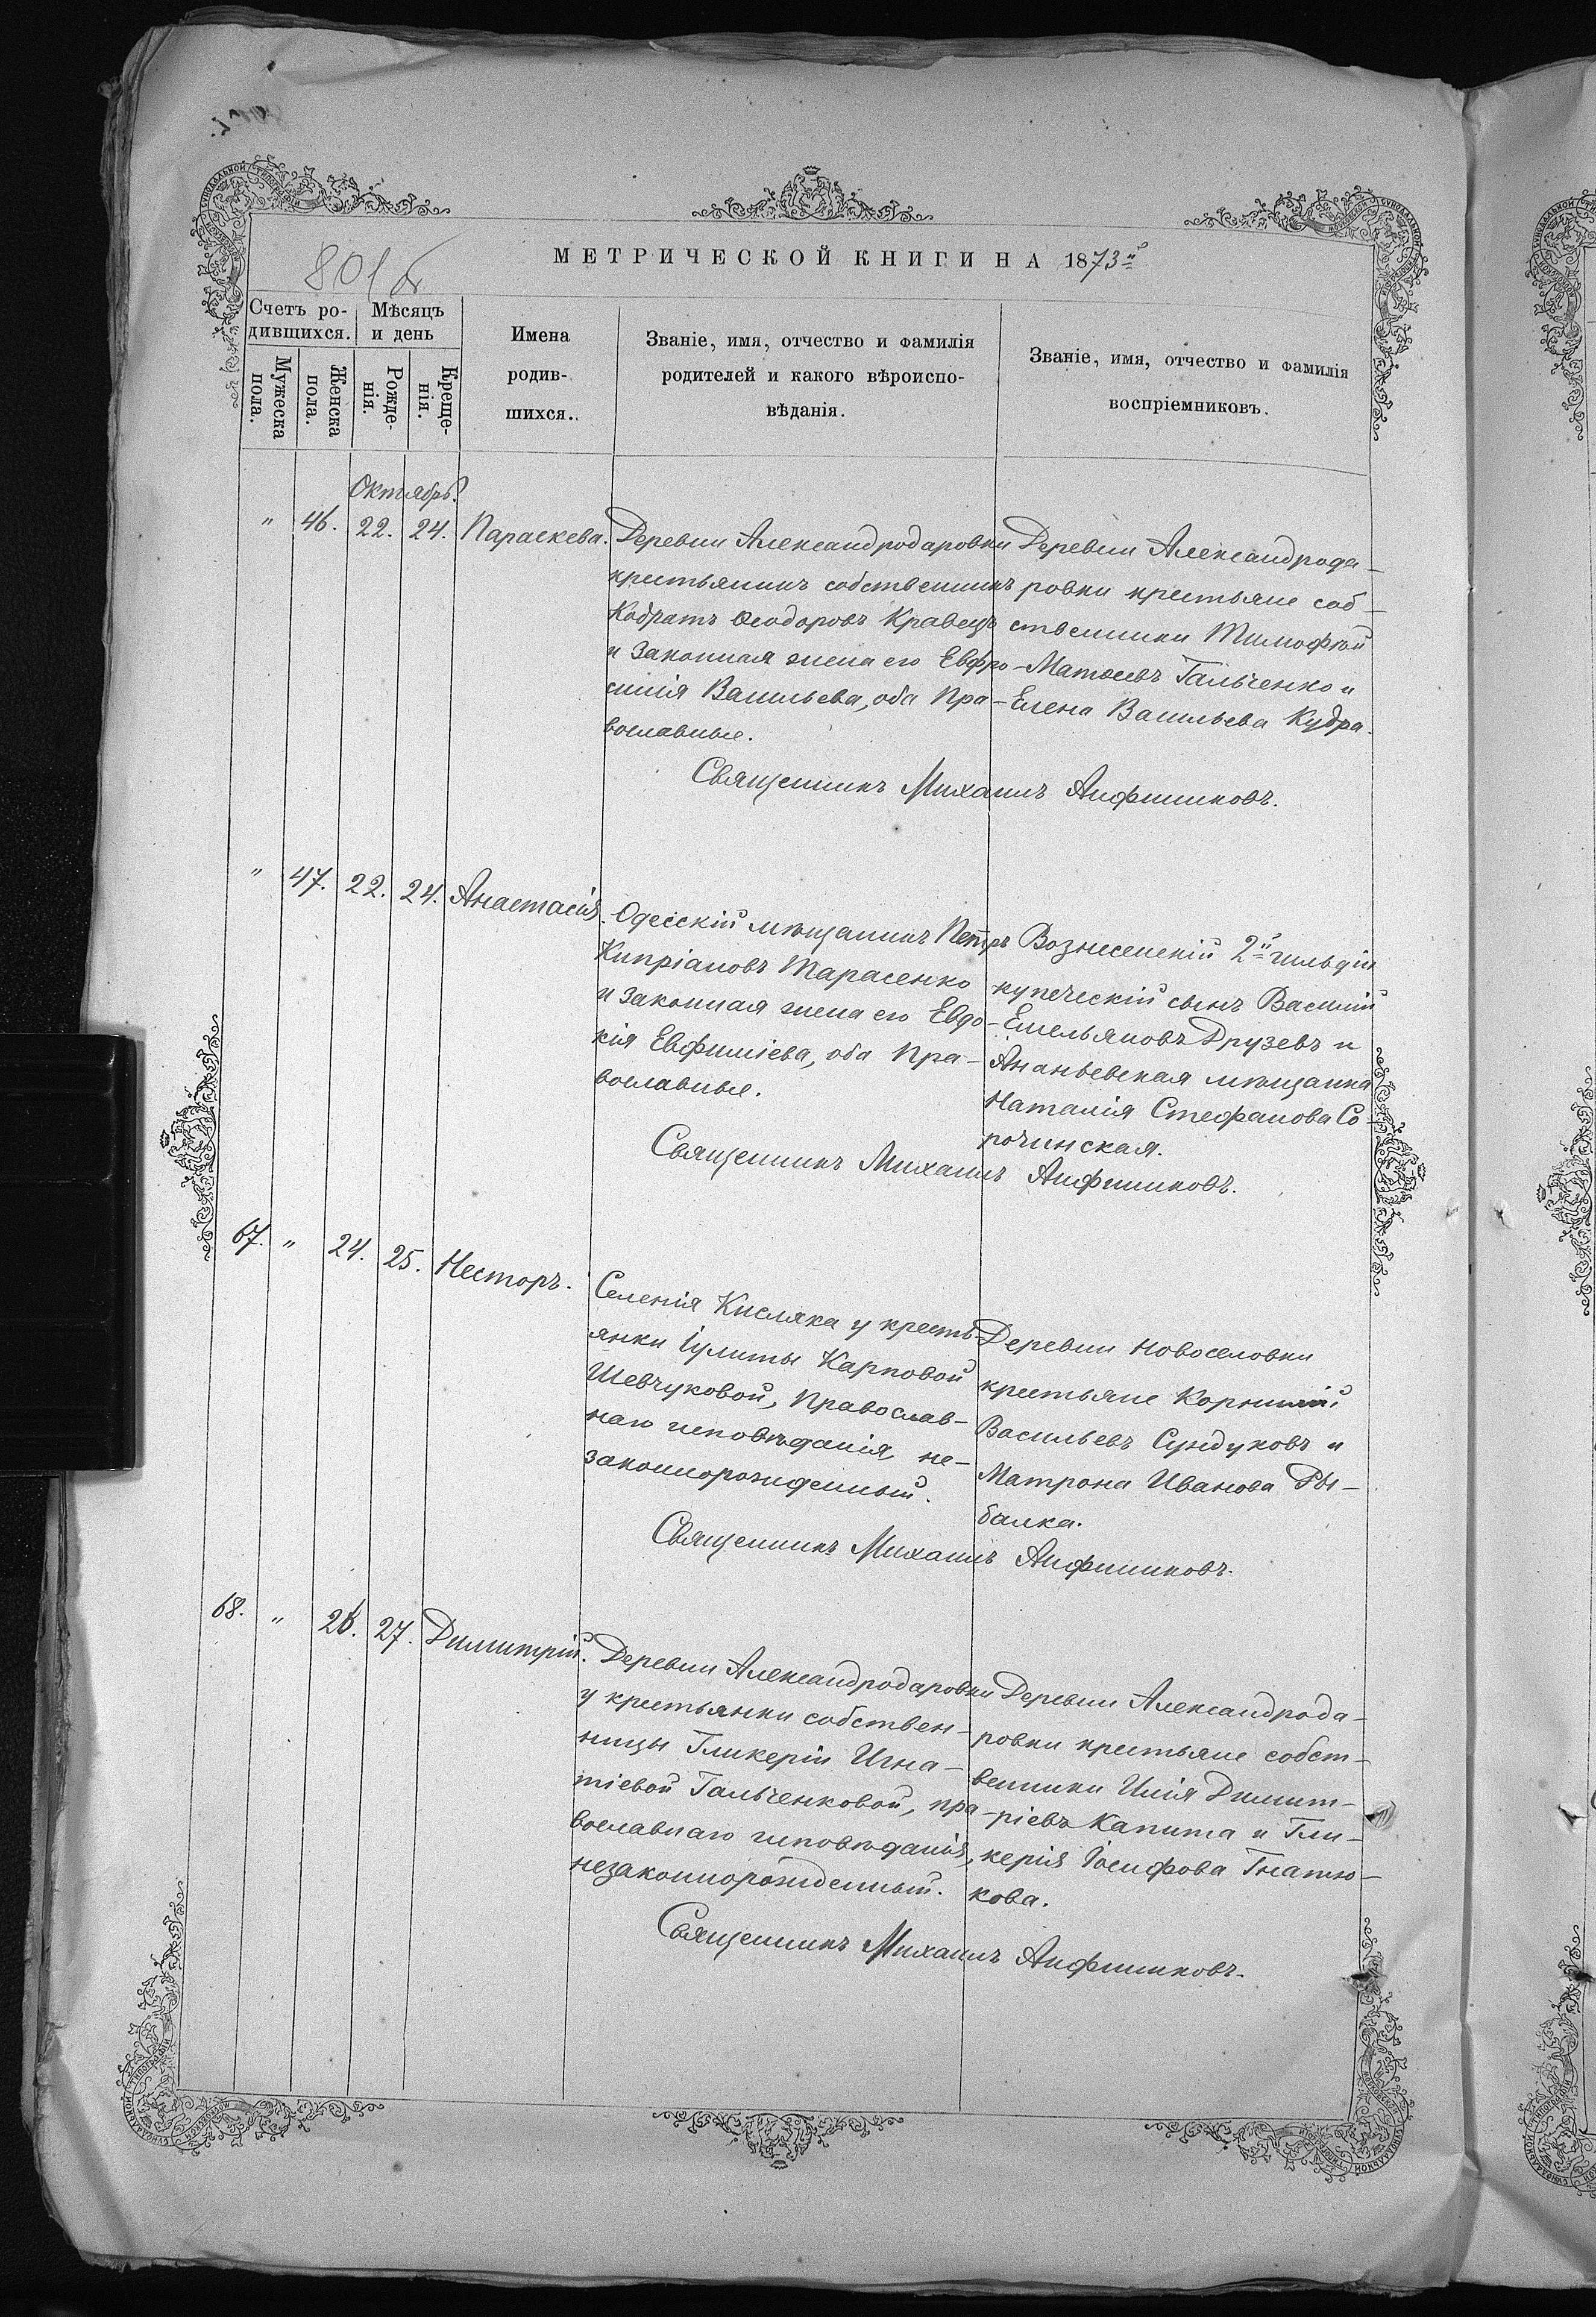 801б
МЕТРИЧЕСКОЙ КНИГИ НА 1873й
Счетъ ро-
дившихся.
Мѣсяцъ
и день
Мужеска
пола.
Женска
пола.
Рожде-
нія.
Креще-
нія.
Имена
родив-
шихся.
Званіе, имя, отчество и фамилія
родителей и какого вѣроиспо-
вѣданія.
Званіе, имя, отчество и фамилія
воспріемниковъ.
Октябрь.
" 46. 22. 24. Параскева.
Деревни Александродаровки
крестьянинъ собственникъ
Кодратъ Ѳеодоровъ Кравецъ
и законная жена его Евфро-
синія Васильева, оба Пра-
вославные.
Деревни Александрода-
ровки крестьяне соб-
ственники Тимофей
Матѳеевъ Гальченко и
Елена Васильева Кудра.
Священникъ Михаилъ Анфиниковъ.
" 47. 22. 24. Анастасія.
Одесскій мѣщанинъ Петръ
Кипріановъ Тарасенко
и законная жена его Евдо-
кія Евфиміева, оба Пра-
вославные.
Вознесенскій 2й гильдіи
купеческій сынъ Василій
Емельяновъ Друзевъ и
Ананьевская мѣщанка
Наталія Стефанова Со-
рочинская.
Священникъ Михаилъ Анфиниковъ.
67. " 24. 25. Несторъ.
Селенія Кисляка у кресть-
янки Іулиты Карповой
Шевчуковой, Православ-
наго исповѣданія, не-
законнорожденный.
Деревни Новоселовки
крестьяне Корнилій
Васильевъ Сундуковъ и
Матрона Иванова Ры-
балка.
Священникъ Михаилъ Анфиниковъ.
68. " 26. 27. Димитрій.
Деревни Александродаровки
у крестьянки собствен-
ницы Гликеріи Игна-
тіевой Гальченковой, пра-
вославнаго исповѣданія,
незаконнорожденный.
Деревни Александрода-
ровки крестьяне собст-
венники Илія Димит-
ріевъ Капита и Гли-
керія Іосифова Гнатю-
кова.
Священникъ Михаилъ Анфиниковъ.